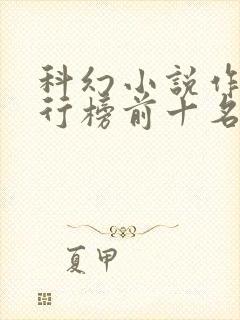 科幻小说作
行榜前十名
夏甲